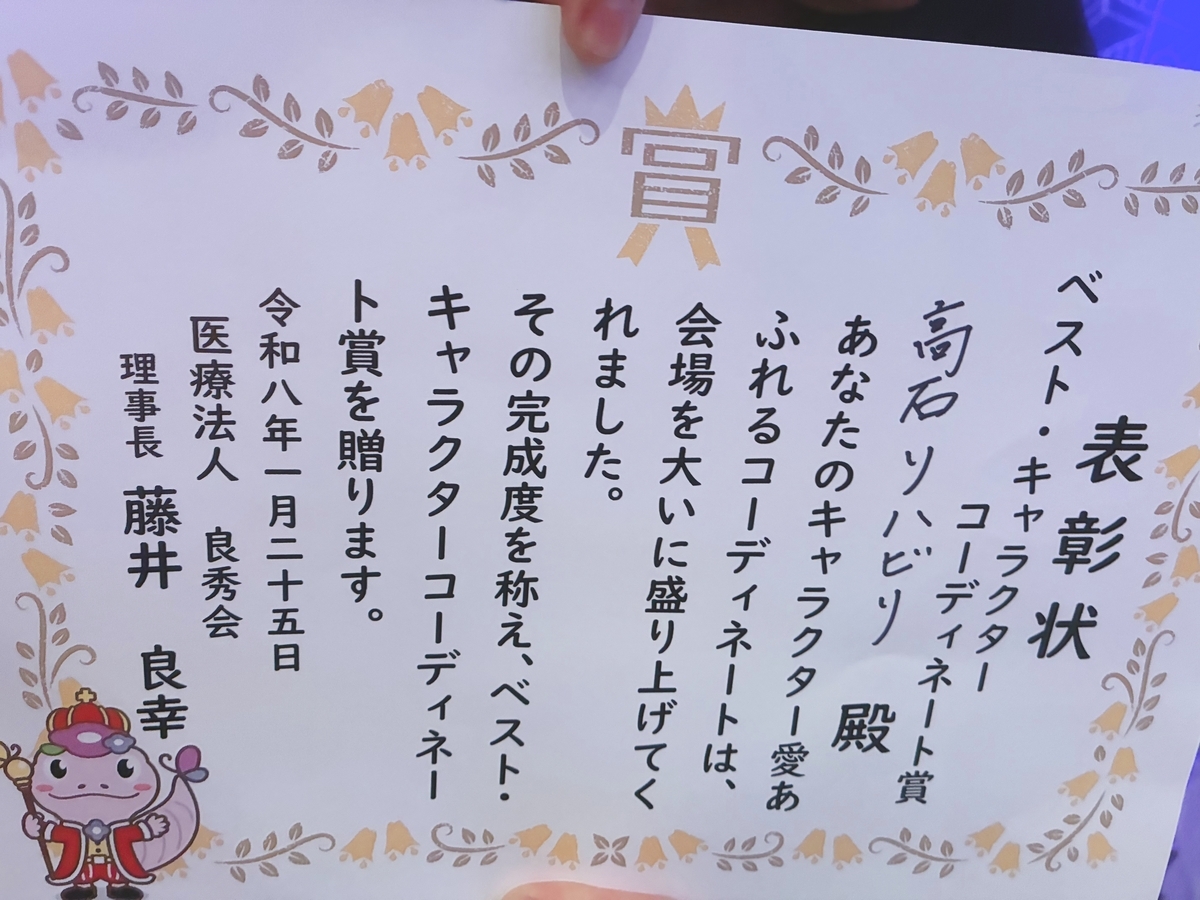 賞
表彰状
ベスト・キャラクター
コーディネート賞
高石リハビリ 殿
あなたのキャラクター愛あ
ふれるコーディネートは、
会場を大いに盛り上げてく
れました。
その完成度を称え、ベスト・
キャラクターコーディネー
ト賞を贈ります。
令和八年一月二十五日
医療法人 良秀会
理事長 藤井 良幸